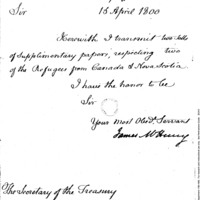 Sir 15 April 1800
Herewith I transmit two sets
of Supplimentary papers, respecting two
of the Refugees from Canada & Nova Scotia.
I have the honor to be
Sir
Your most Obed. Servant
James McHenry
The Secretary of the Treasury